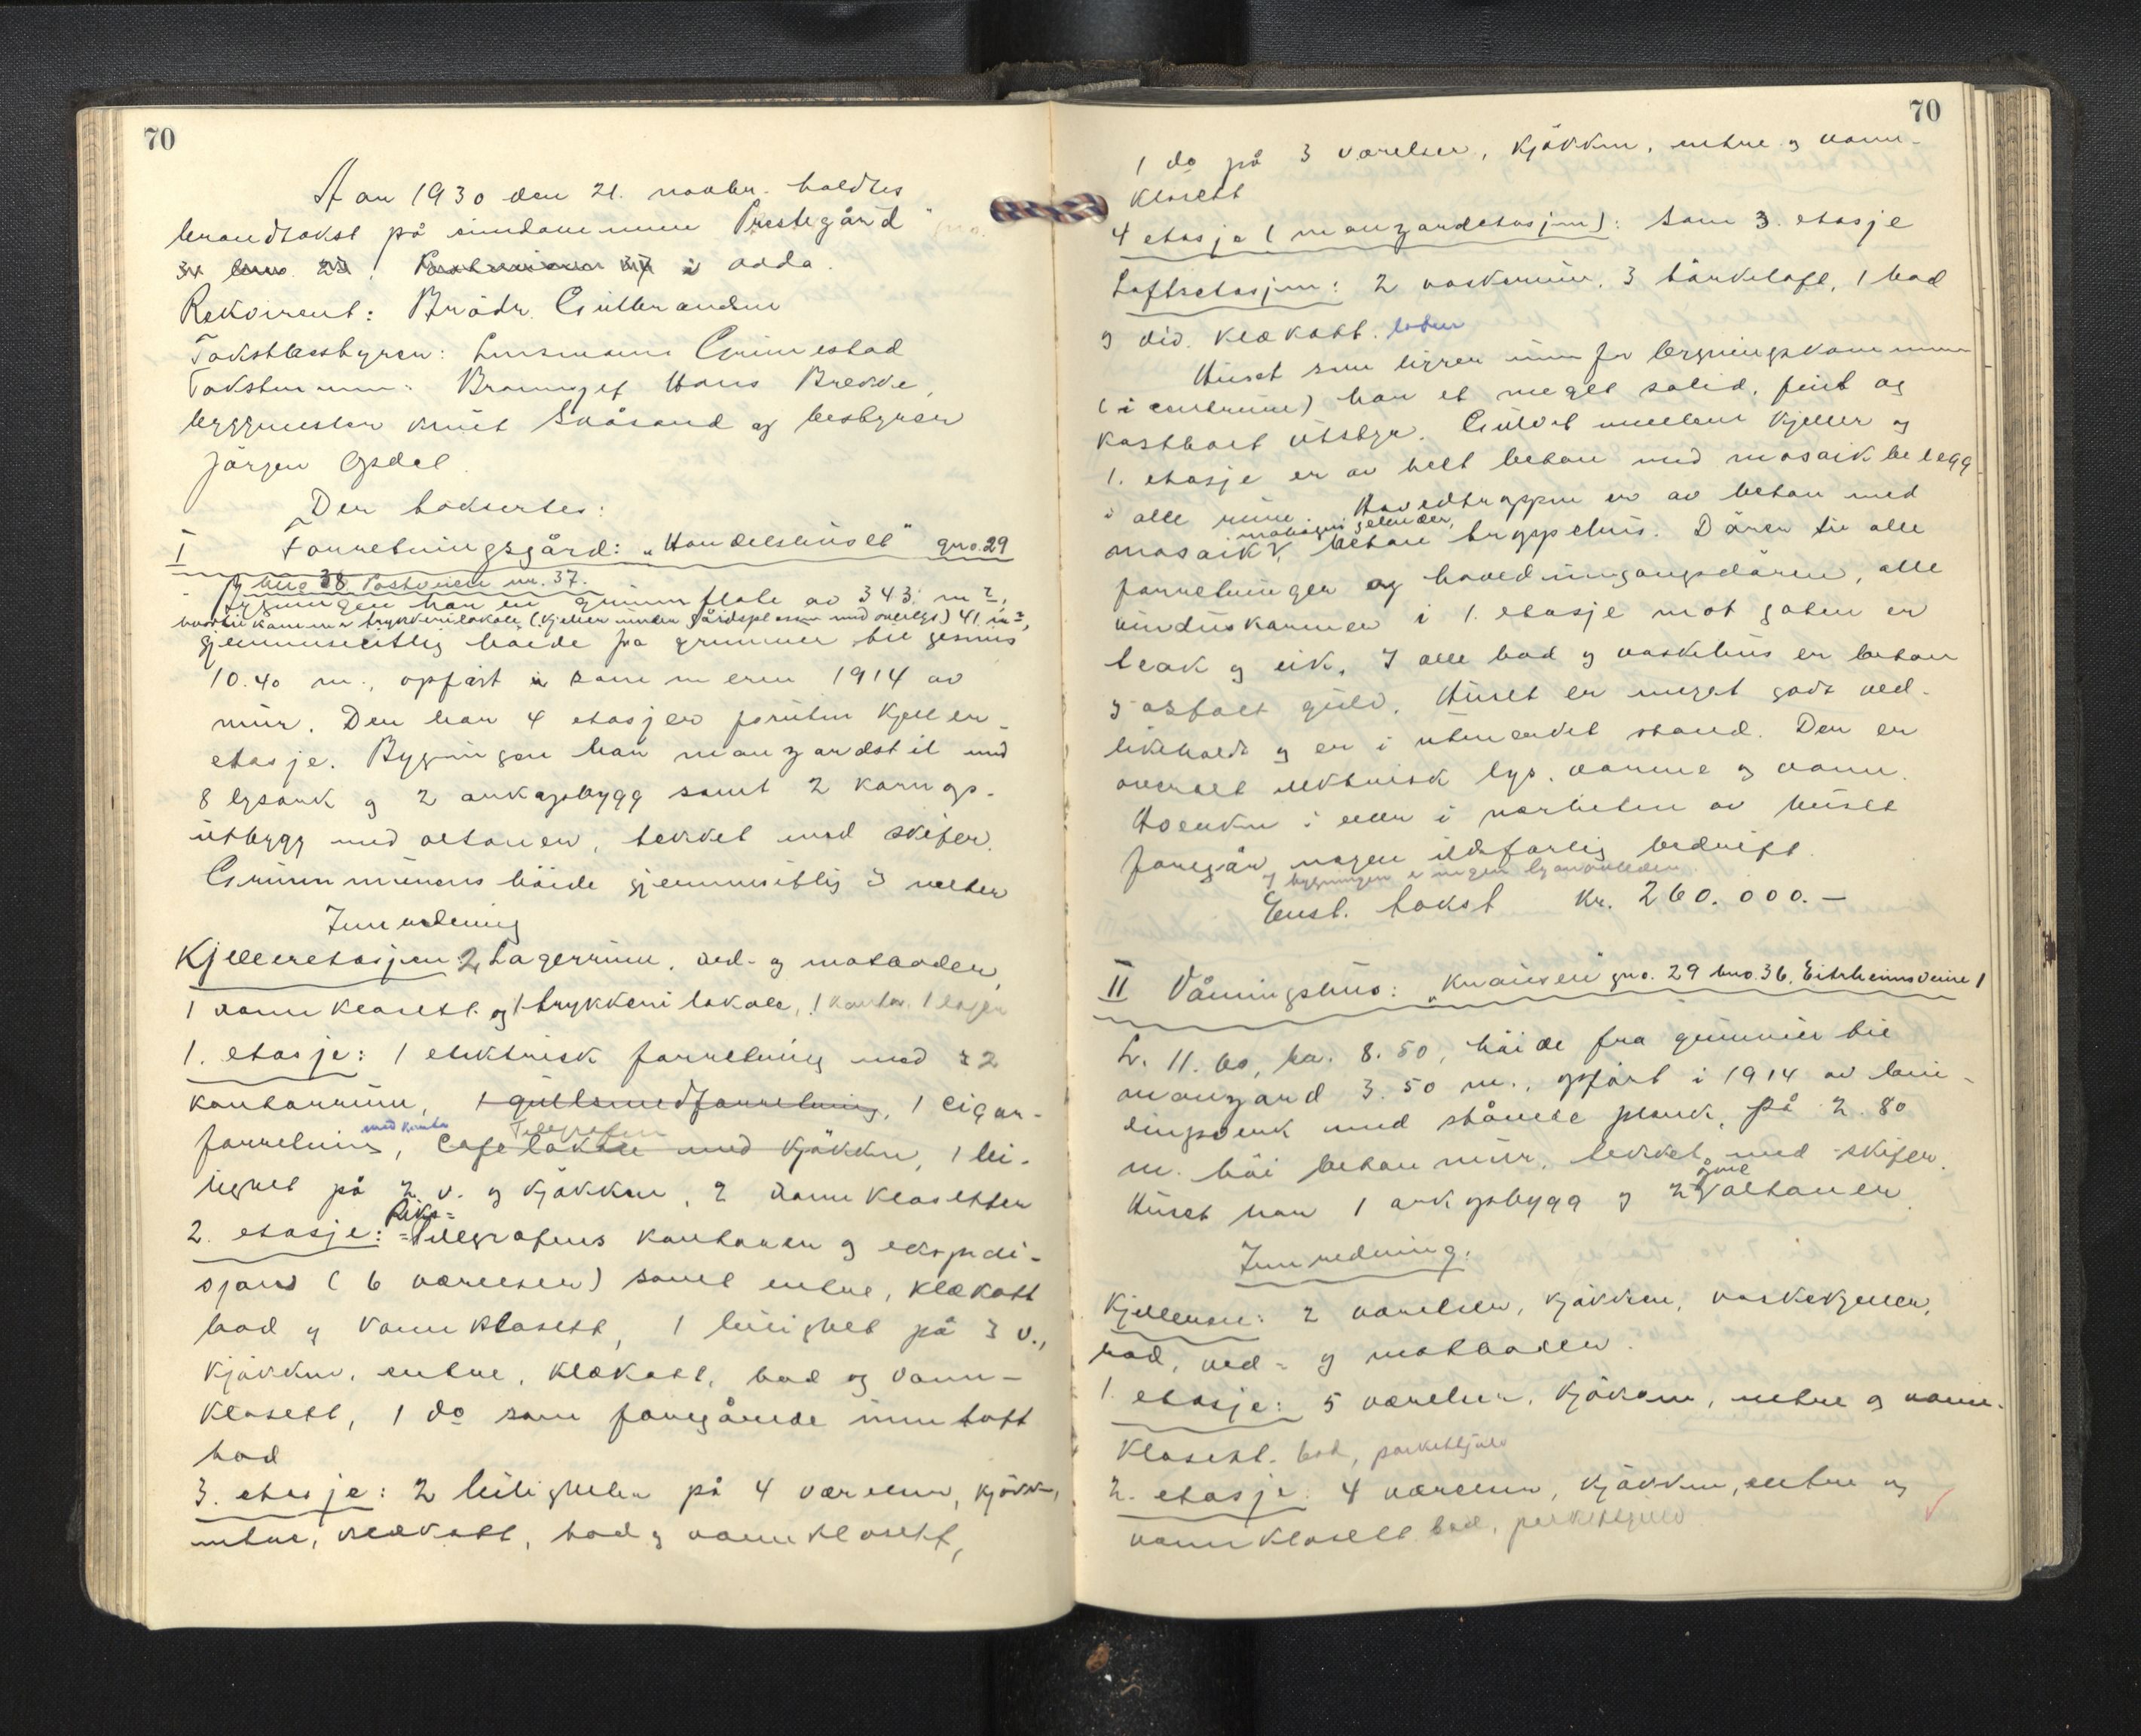 70
Aar 1930 den 21. novbr. holdtes
brandtakst på eiendommen Prestegård
i Odda.
Rekvirent: Brödr. Gulbrandsen
Takstbestyrer: Lensmann Grimestad
Takstmenn: Brannsjef Hans Brekke,
byggmester Knut Skåsand og bestyrer
Jörgen Opdal.
Der taksertes:
I Forretningsgård: "Handelshuset" gno. 29
bno 38 Postveien nr. 37.
Bygningen har en grunnflate av 343 m2,
hvortil kommer trykkerilokale (kjeller under gårdsplassen med overlys) 41 m2,
gjennemsnitlig höide fra grunnmur til gesims
10.40 m., opfört i sommeren 1914 av
mur. Den har 4 etasjer foruten kjeller-
etasje. Bygningen har manzardstil med
8 lysark og 2 arkopbygg samt 2 karnap-
utbygg med altaner, tekket med skifer.
Grunnmurens höide gjennemsnitlig 3 meter
Innredning
Kjelleretasjen: 2 Lagerrum, ved- og matboder,
1 vannklosett og 1 trykkeri lokale, 1 kontor 1 lager
1. etasje: 1 elektrisk forretning med 2
kontorrum, 1 gullsmedforretning, 1 cigar-
med kontor Telegrafen
forretning, Cafelokale med kjökken, 1 lei-
lighet på 2 v. og kjökken, 2 vannklosetter
Riks-
2. etasje: Telegrafens kontorer og ekspedi-
sjon (6 værelser) samt entre, klækott
bad og vannklosett, 1 leilighet på 3 v.,
kjökken, entre, klækott, bad og vann-
klosett, 1 do som foregående unntatt
bad
3. etasje: 2 leiligheter på 4 værelser, kjökken,
entre, klækott, bad og vannklosett,
70
1 do på 3 værelser, kjökken, entre og vann-
klosett
4 etasje (manzardetasjen): Som 3. etasje
Loftsetasjen: 2 vaskerum, 3 törkeloft, 1 bad
og div. klækott. boder
Huset som ligger innenfor bygningskommunen
(i centrum) har et meget solid, fint og
kostbart utstyr. Gulvet mellem kjeller og
1. etasje er av helt betong med mosaikbelegg
i alle rum. Hovedtrappen er av betong med
mahogni gelender,
mosaikk, betong trappehus. Dörer til alle
forretninger og hovedinngangsdören, alle
vinduskarmer i 1. etasje mot gaten er
teak og eik. I alle bad og vaskehus er betong
og asfalt gulv. Huset er meget godt ved-
likeholdt og er i utmerket stand. Der er
overalt elektrisk lys, varme og vann.
Hverken i eller i nærheten av huset
foregår nogen ildsfarlig bedrift.
i bygningen er ingen
Enst. takst Kr. 260.000.-
II Våningshus: "Knausen" gno. 29 bno. 36. Eitrheimsveien 1
L. 11.60, br. 8.50, höide fra grunnmur til
manzard 3.50 m., opfört i 1914 av bin-
dingsverk med stående plank, på 2.80
m. höi betongmur, tekket med skifer.
Huset har 1 arkopbygg og 2 altaner
Innredning.
Kjelleren: 2 værelser, kjökken, vaskekjeller,
bod, ved- og matboder.
1. etasje: 5 værelser, kjökken, entre og vann-
klosett. bad, parkettgulv
2. etasje: 4 værelser, kjökken, entre og
vannklosett bad, parkettgulv